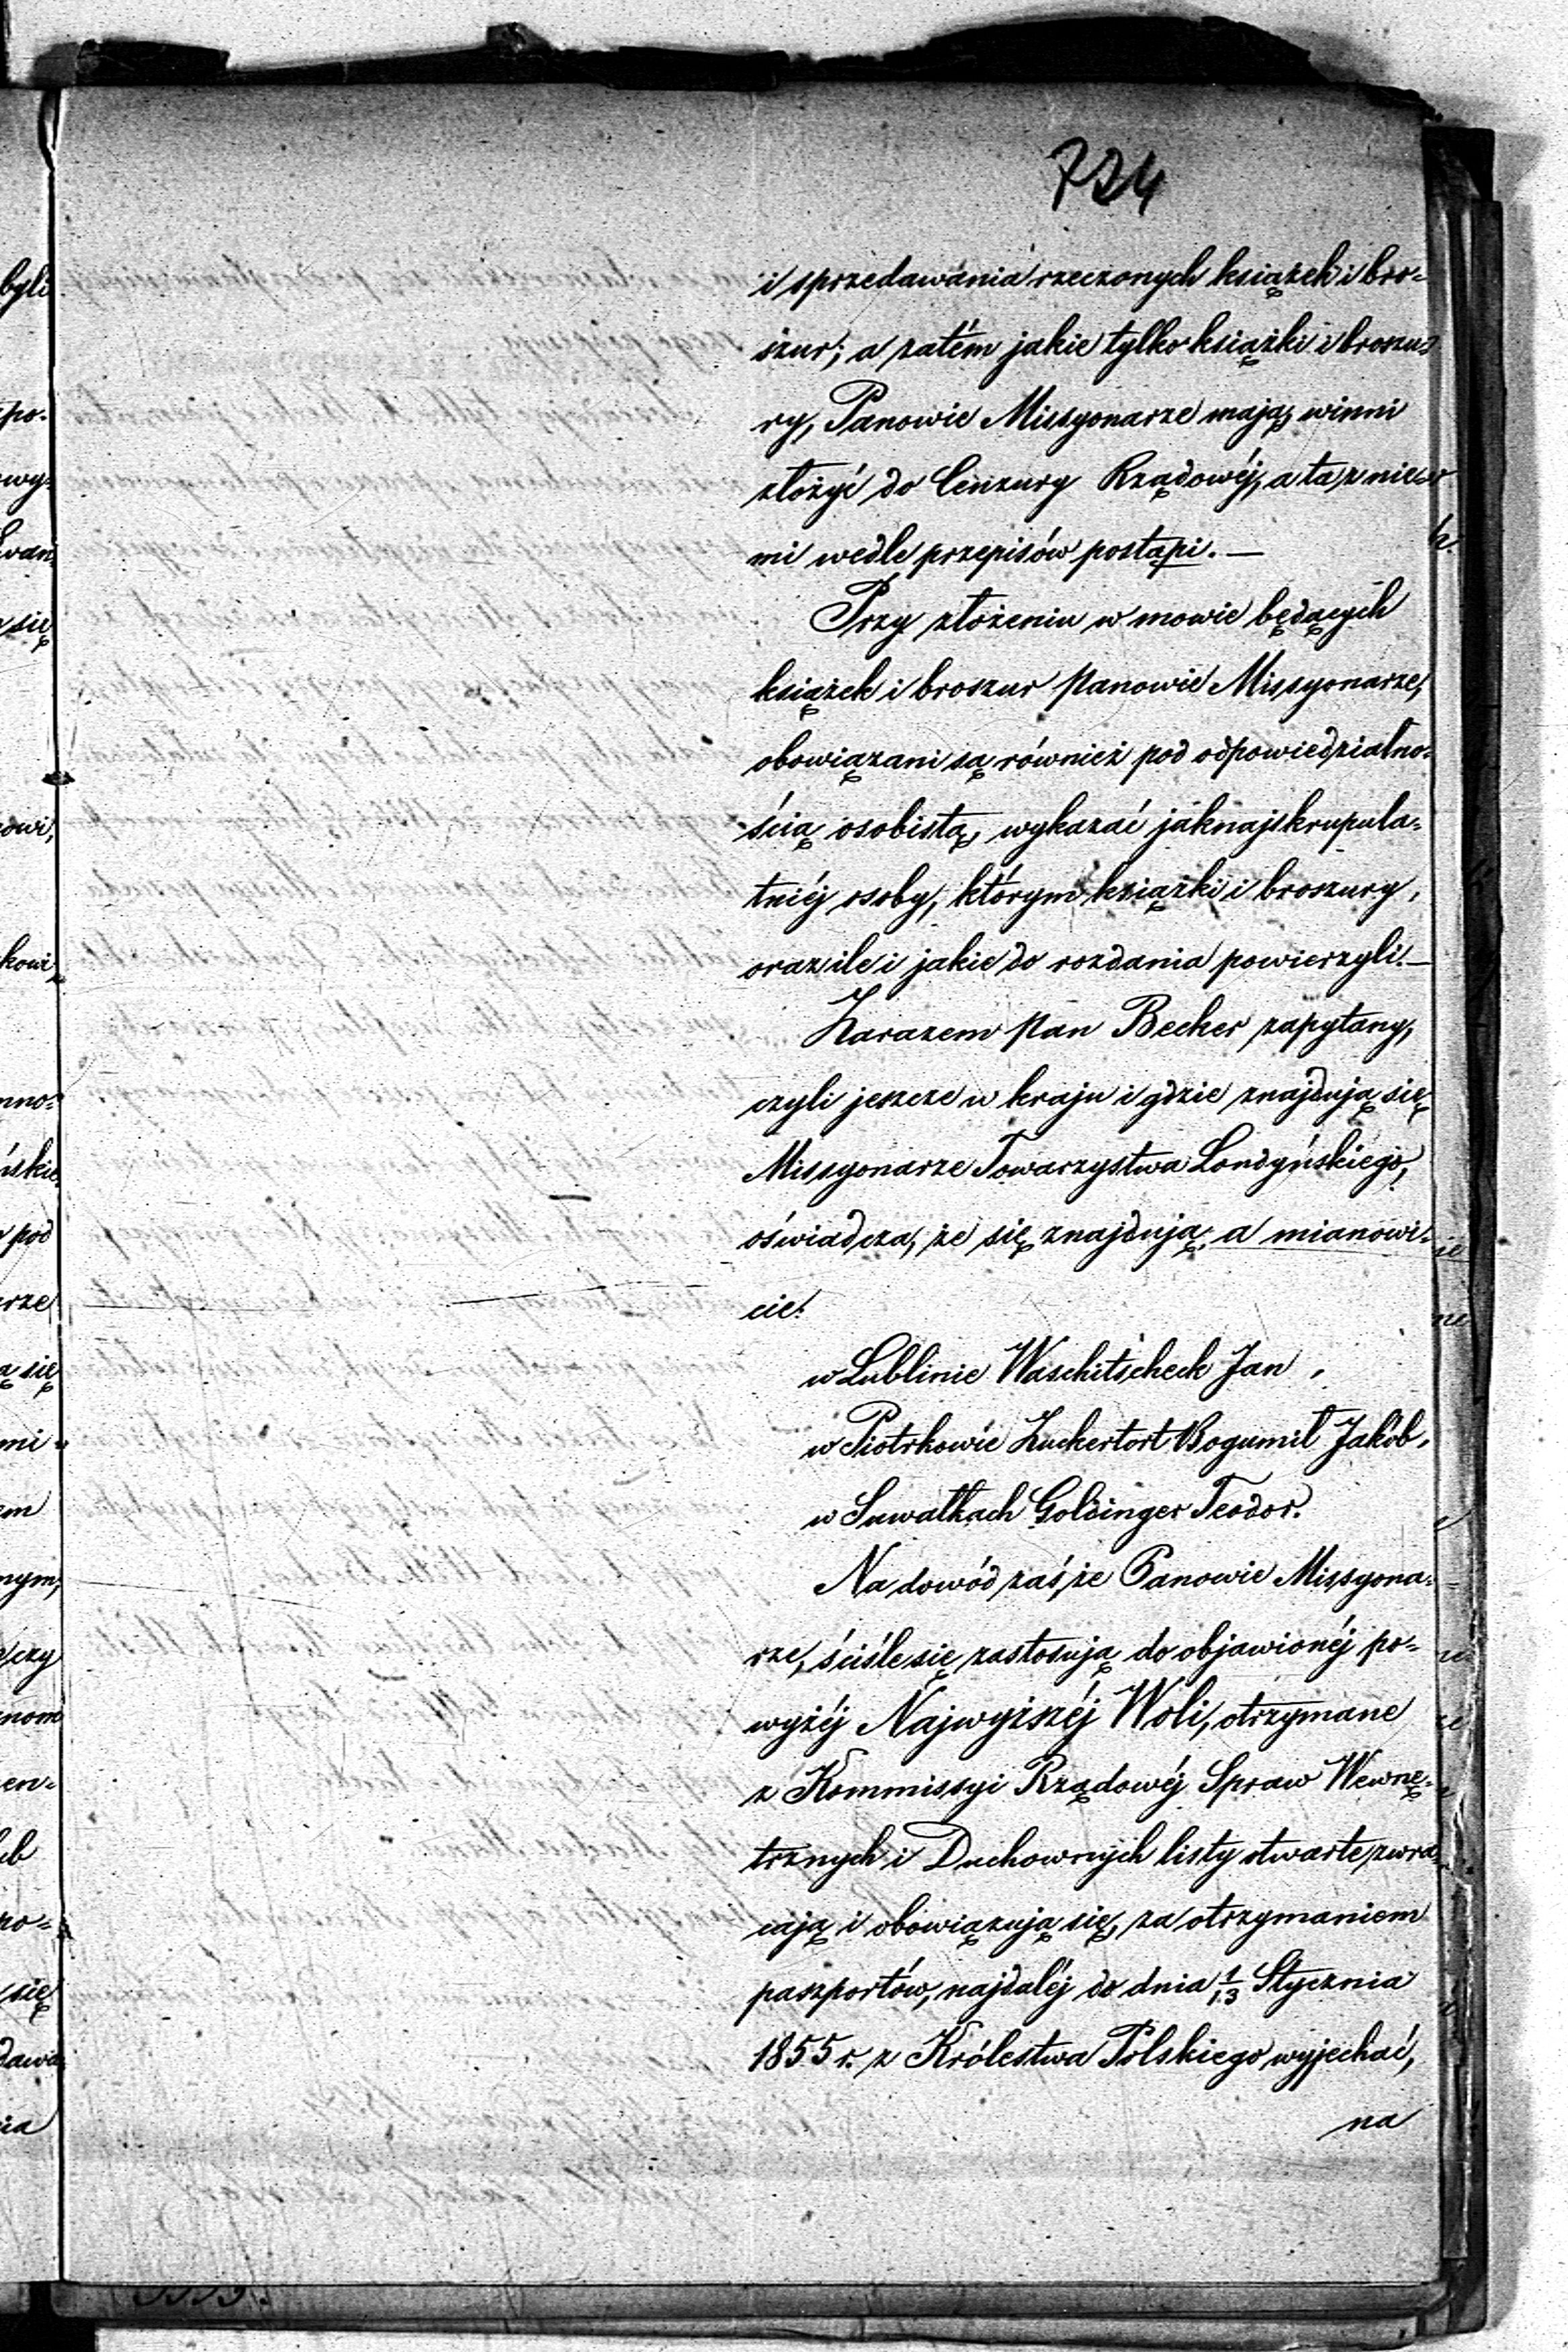 724
i sprzedawania rzeczonych książek i bro=
szur; a zatém jakie tylko książki i broszu=
ry, Panowie Missyonarze mają, winni
złożyć do Cenzury Rządowéj, a ta z nie=
mi wedle przepisów postąpi. —
Przy złożeniu w mowie będących
książek i broszur Panowie Missyonarze,
obowiązani są również pod odpowiedzialno=
ścią osobistą, wykazać jaknajskrupula=
tniéj osoby, którym książki i broszury,
oraz ile i jakie do rozdania powierzyli. —
Zarazem Pan Becker zapytany,
czyli jeszcze w kraju i gdzie znajdują się
Missyonarze Towarzystwa Londyńskiego,
oświadcza, że się znajdują, a mianowi=
cie:
w Lublinie Waschitscheck Jan,
w Piotrkowie Zuckertort Bogumił Jakób,
w Suwałkach Goldinger Teodor.
Na dowód zaś, że Panowie Missyona=
rze, ściśle się zastosują do objawionéj po=
wyżéj Najwyższéj Woli, otrzymane
z Kommissyi Rządowéj Spraw Wewnę=
trznych i Duchownych listy otwarte, zwra=
cają i obowiązują się, za otrzymaniem
paszportów, najdaléj do dnia 1/13 Stycznia
1855 r. z Królestwa Polskiego wyjechać,
na